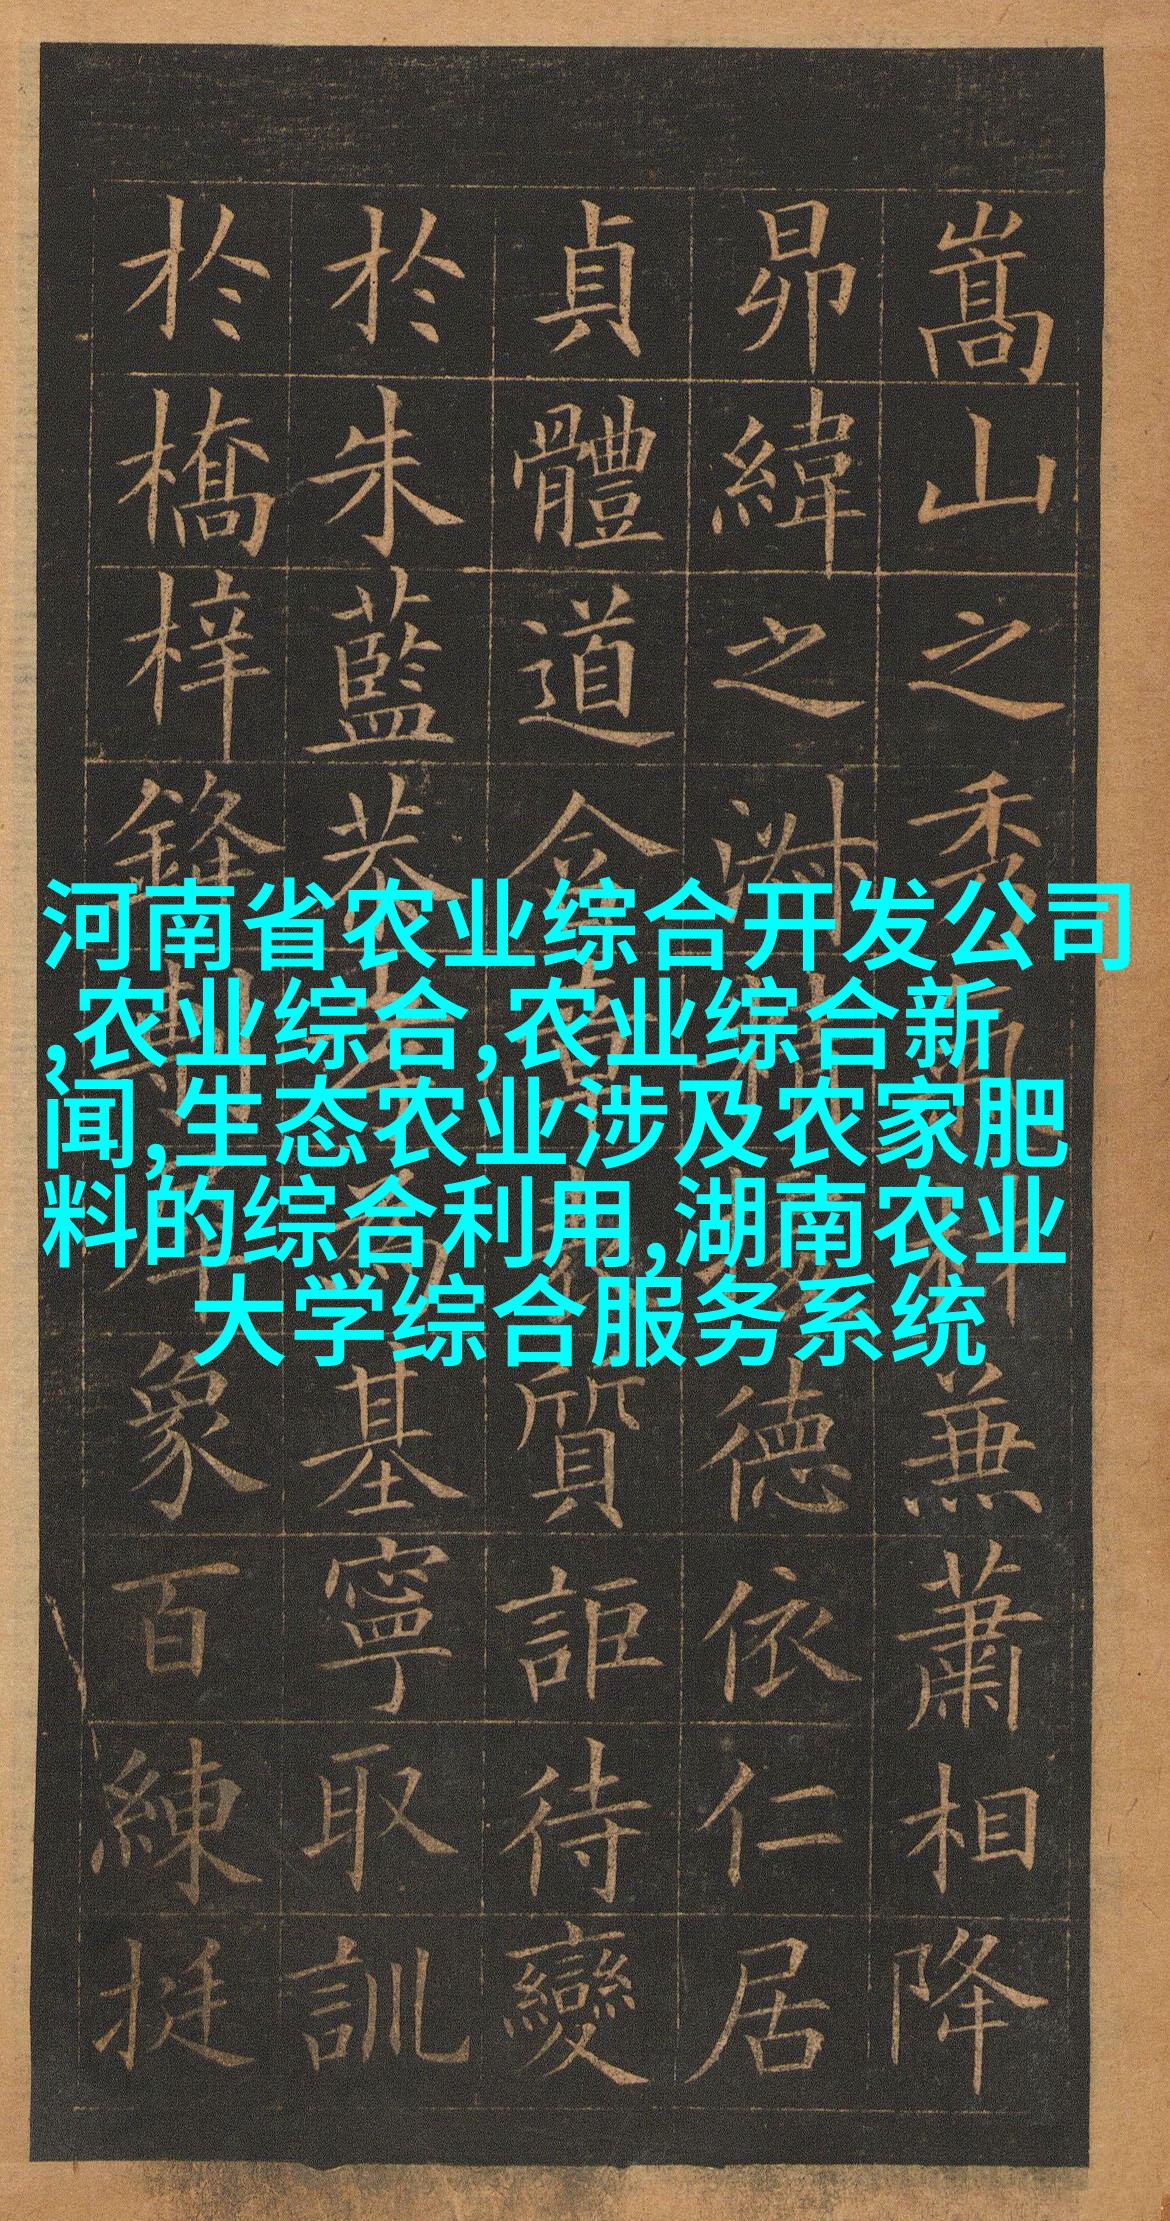 河南省农业综合开发公司
,农业综合,农业综合新
闻,生态农业涉及农家肥
料的综合利用,湖南农业
大学综合服务系统
嵩山之秀材兼蕭相降
昴緯之淑精據德依仁居
貞體道含章表質詎待變
於朱藍恭孝為基寧取訓
於橋梓鋒剸犀象百練挺